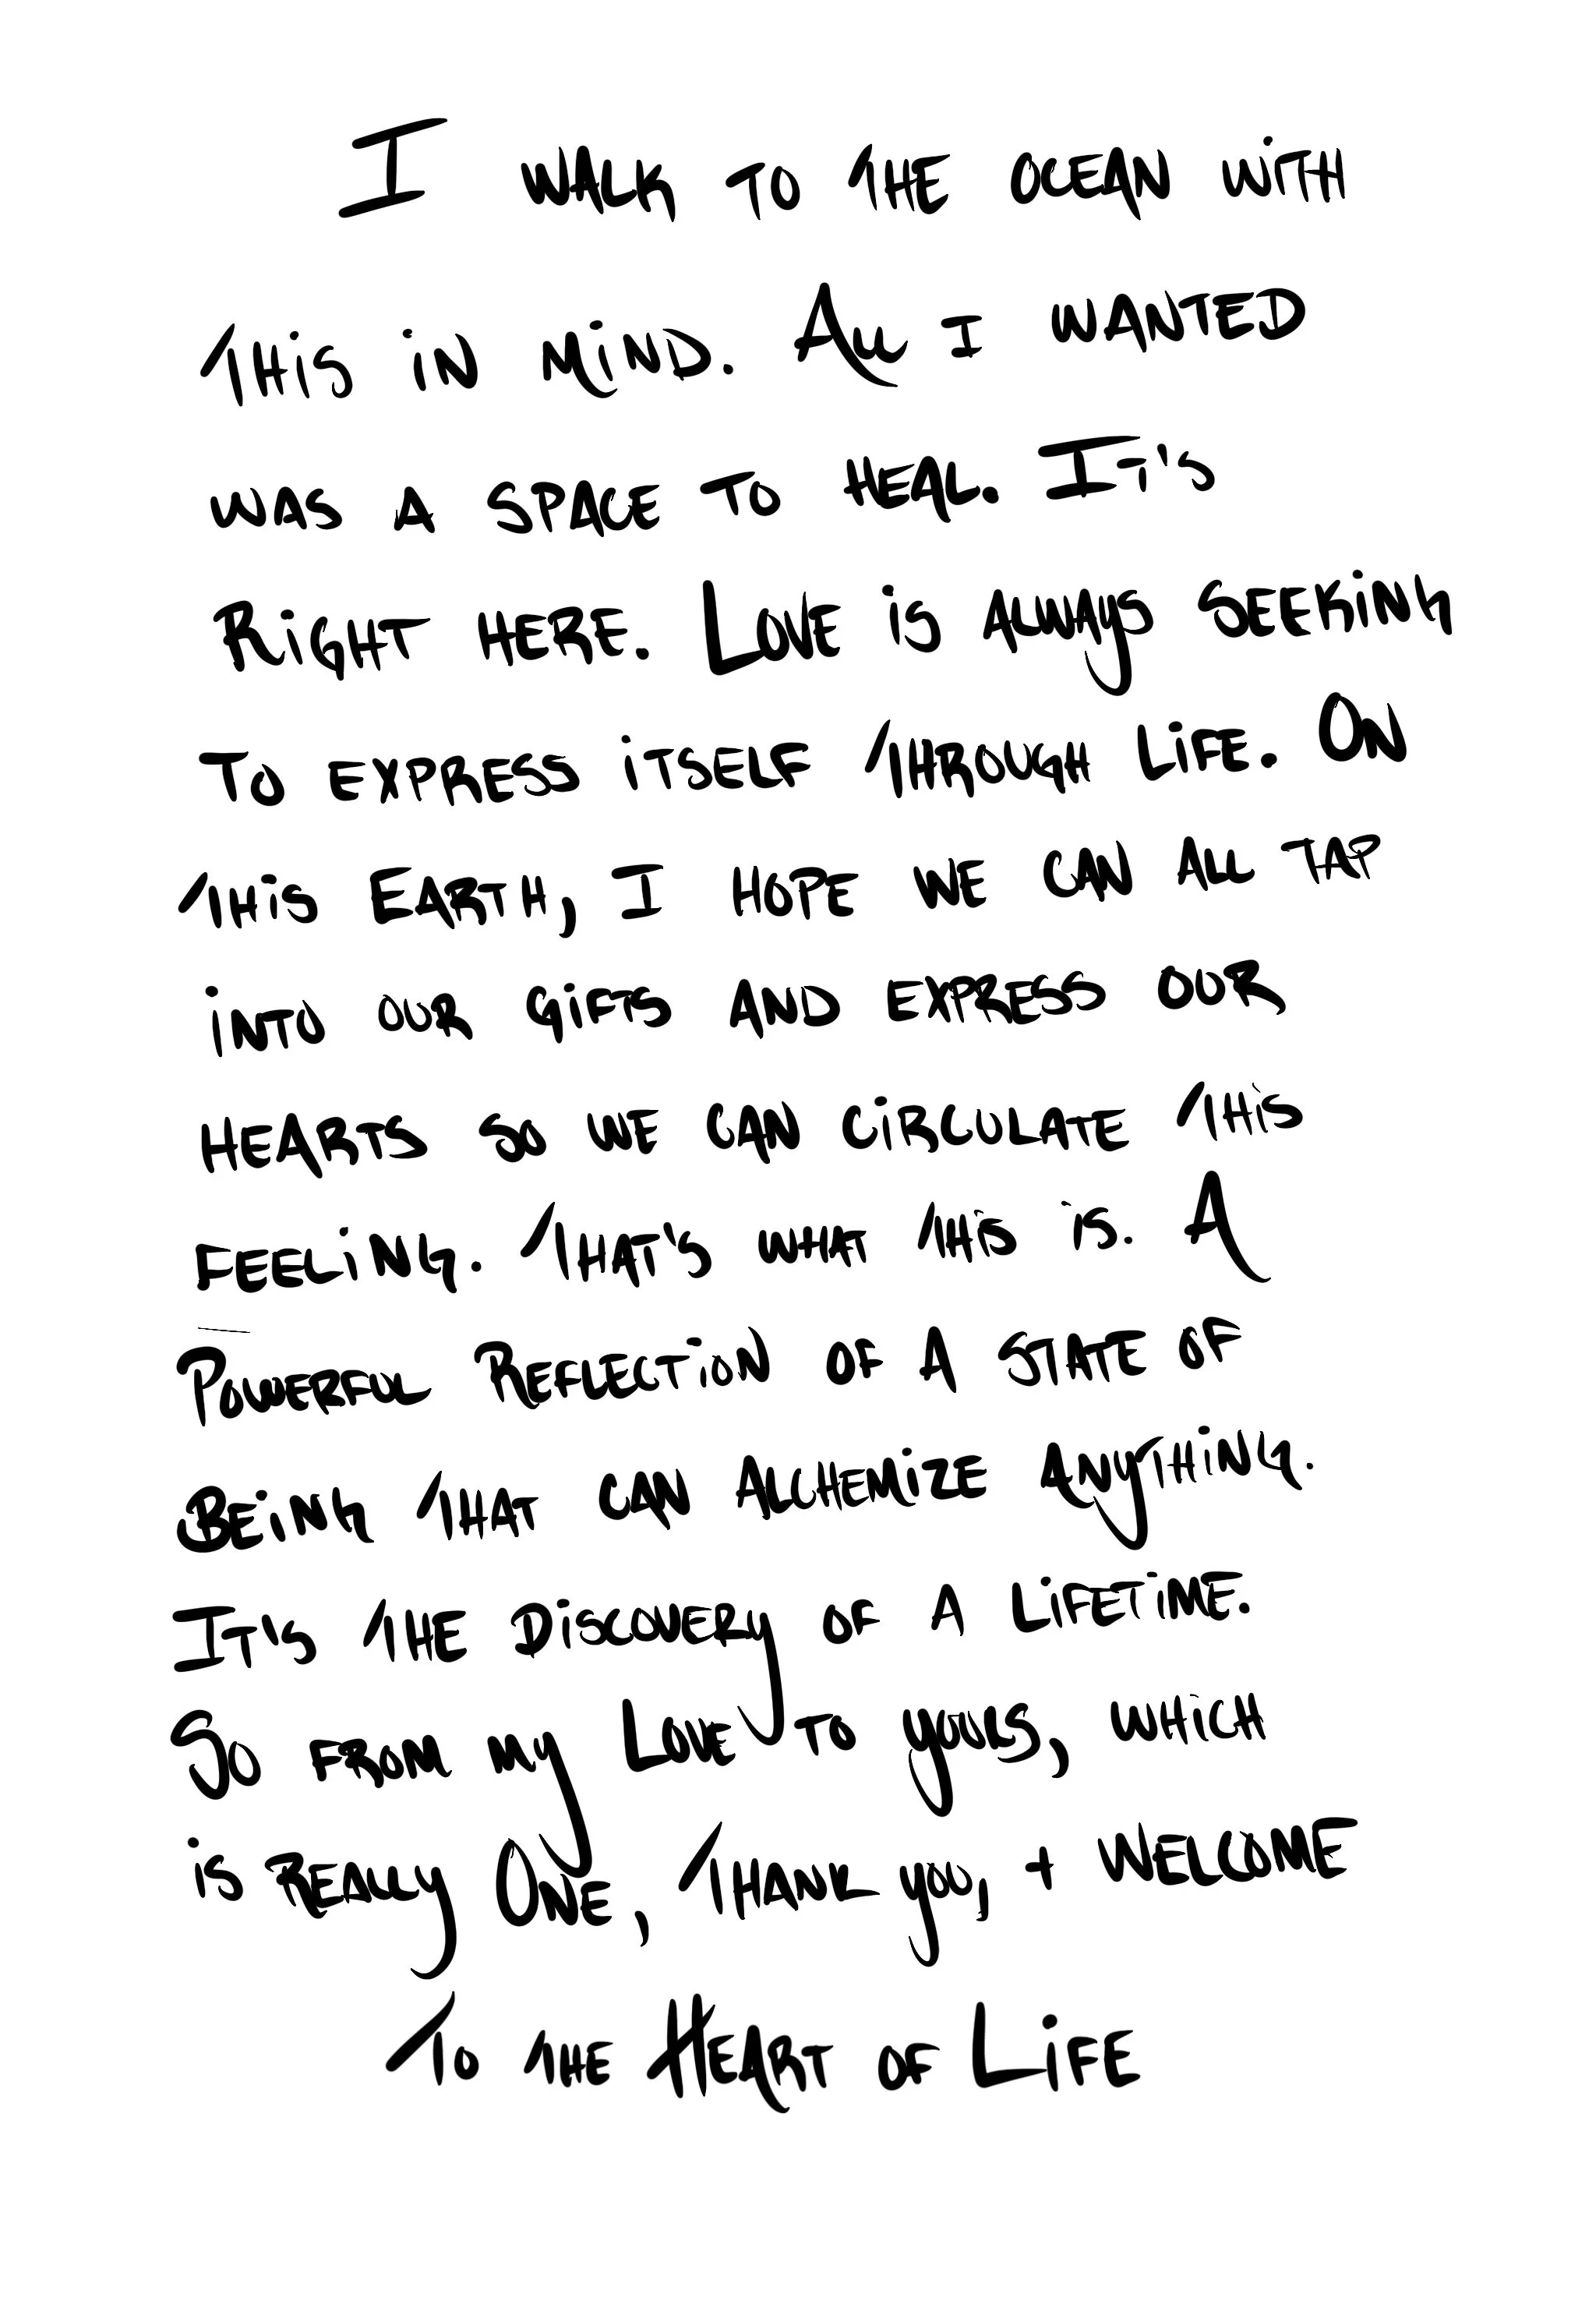 I WALK TO THE OCEAN WiTH
THiS iN MiND. ALL I WANTED
WAS A SPACE TO HEAL. IT'S
RiGHT HERE. LOVE iS ALWAyS SEEKiNG
TO EXPRESS iTSELF THROUGH LiFE. ON
THiS EARTH, I HOPE WE CAN ALL TAP
iNTO OUR GiFTS AND EXPRESS OUR
HEARTS SO WE CAN CiRCULATE THiS
FEELiNG. THAT'S WHAT THiS iS. A
POWERFUL REFLECTiON OF A STATE OF
BEiNG THAT CAN ALCHEMiZE ANyTHiNG.
IT'S THE DiSCOVERy OF A LiFETiME.
SO FROM My LOVE TO yOURS, WHiCH
iS REALLy ONE, THANK yOU, + WELCOME
TO THE HEART OF LiFE